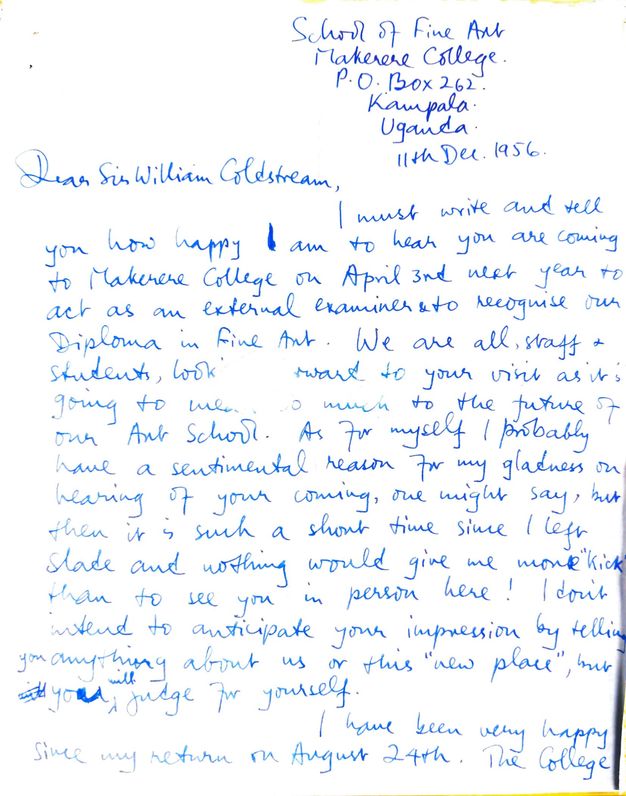 School of Fine Art
Makerere College.
P.O. Box 262.
Kampala.
Uganda.
11th Dec. 1956.
Dear Sir William Coldstream,
I must write and tell
you how happy I am to hear you are coming
to Makerere College on April 3rd next year to
act as an external examiner & to recognise our
Diploma in Fine Art. We are all, staff +
students, look ward to your visit as it is
going to me o much to the future of
our Art School. As for myself I probably
have a sentimental reason for my gladness on
hearing of your coming, one might say, but
then it is such a short time since I left
Slade and nothing would give me more "kick"
than to see you in person here! I don't
intend to anticipate your impression by telling
you anything about us or this "new place", but
you will judge for yourself.
I have been very happy
since my return on August 24th. The College